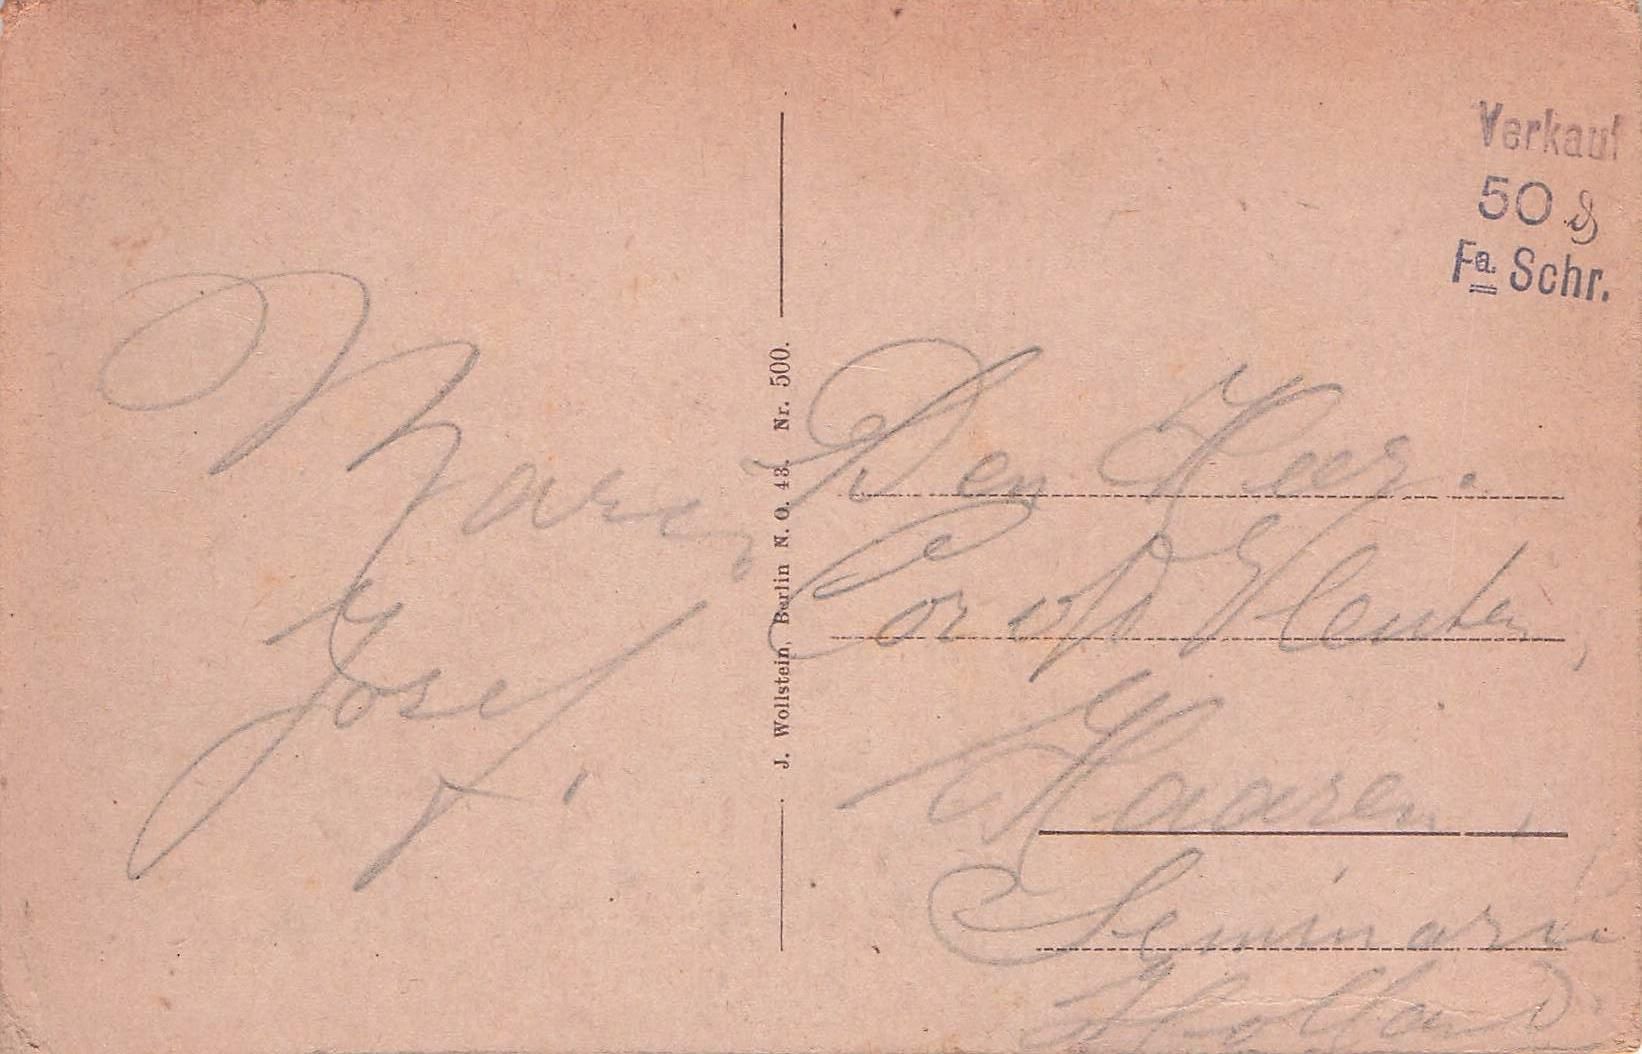 Verkauf
50 ₰
Fa. Schr.
Marie,
Josef
J. Wollstein, Berlin N. O. 43. Nr. 500.
Den Heer.
Cor v/d
Haaren,
Seminarie
Holland